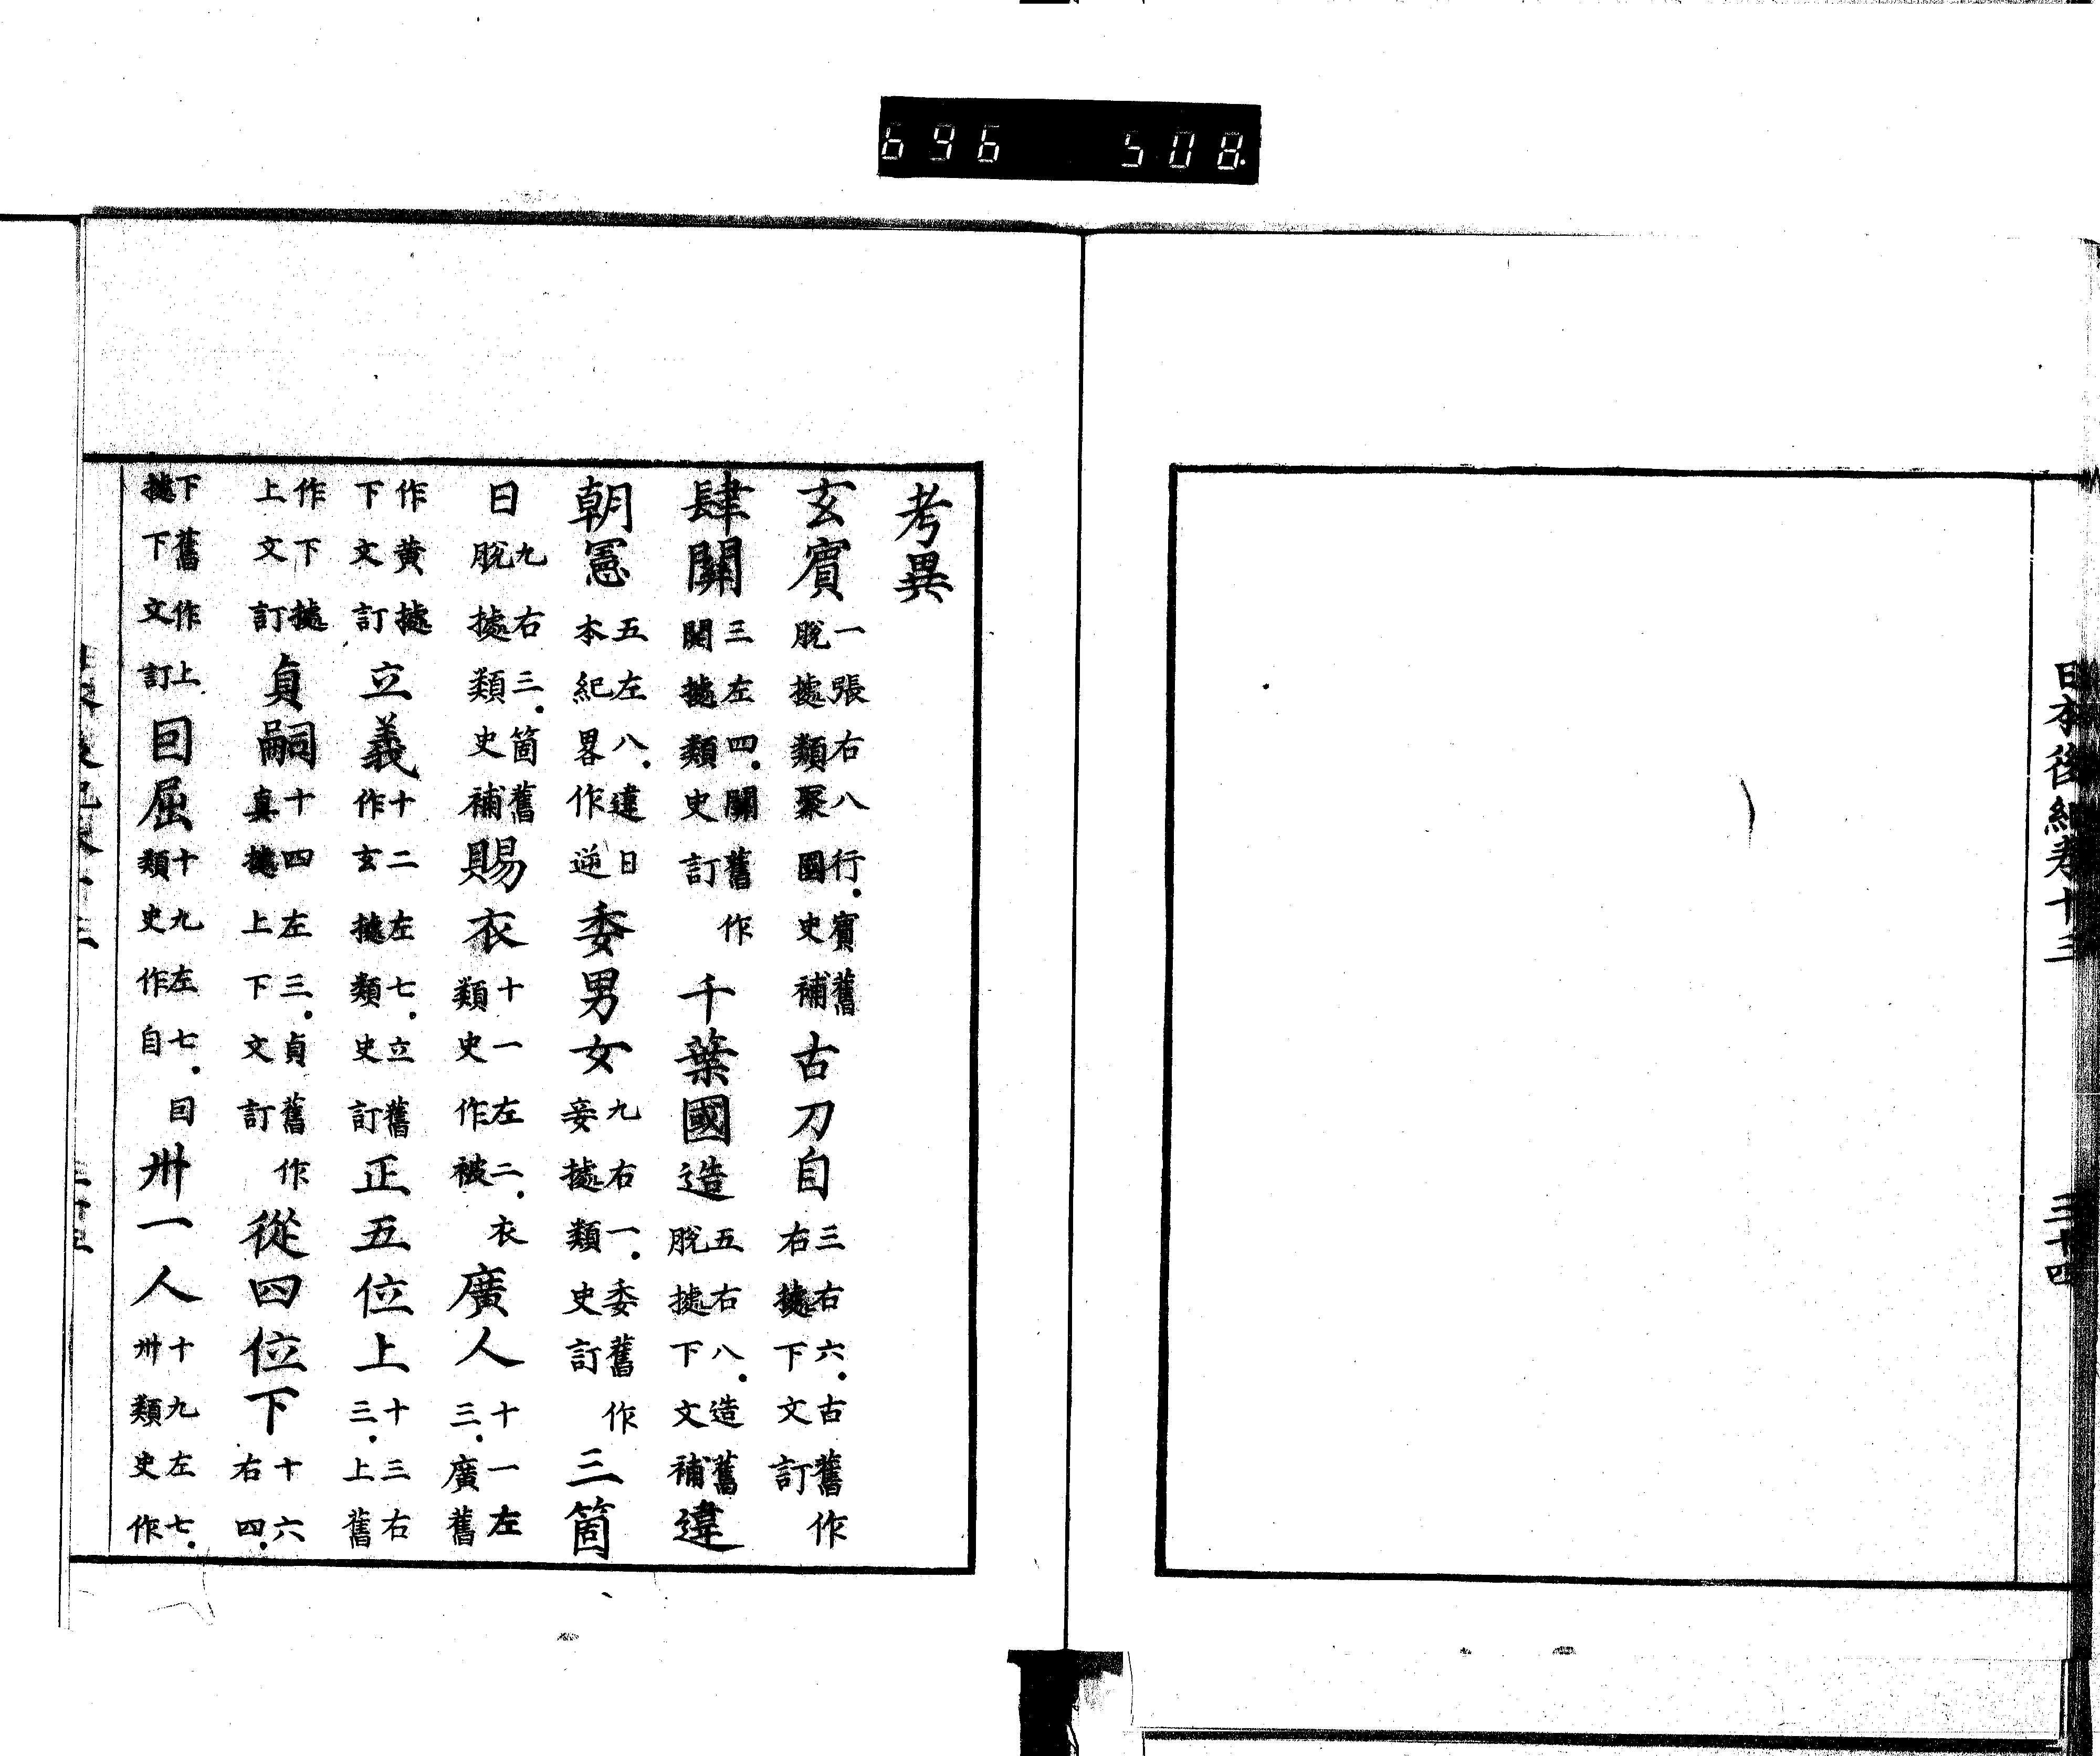 696 508
日本後紀卷十三 三十四
考異
玄賓 一張右八行.賓舊脫據類聚國史補 古刀自 三右六.古舊作右據下文訂
肆關 三左四.關舊作開據類史訂 千葉國造 五右八.造舊脫據下文補 違
朝憲 五左八.違日本紀畧作逆 委男女 九右一.委舊作妾據類史訂 三箇
日 九右三.箇舊脫據類史補 賜衣 十一左二.衣類史作被 廣人 十一左三.廣舊
作黄據下文訂 立義 十二左七.立舊作玄據類史訂 正五位上 十三右三.上舊
作下據上文訂 貞嗣 十四左三.貞舊作真據上下文訂 從四位下 十六右四.
下舊作上據下文訂 囙屈 十九左七.囙類史作自 卅一人 十九左七.卅類史作